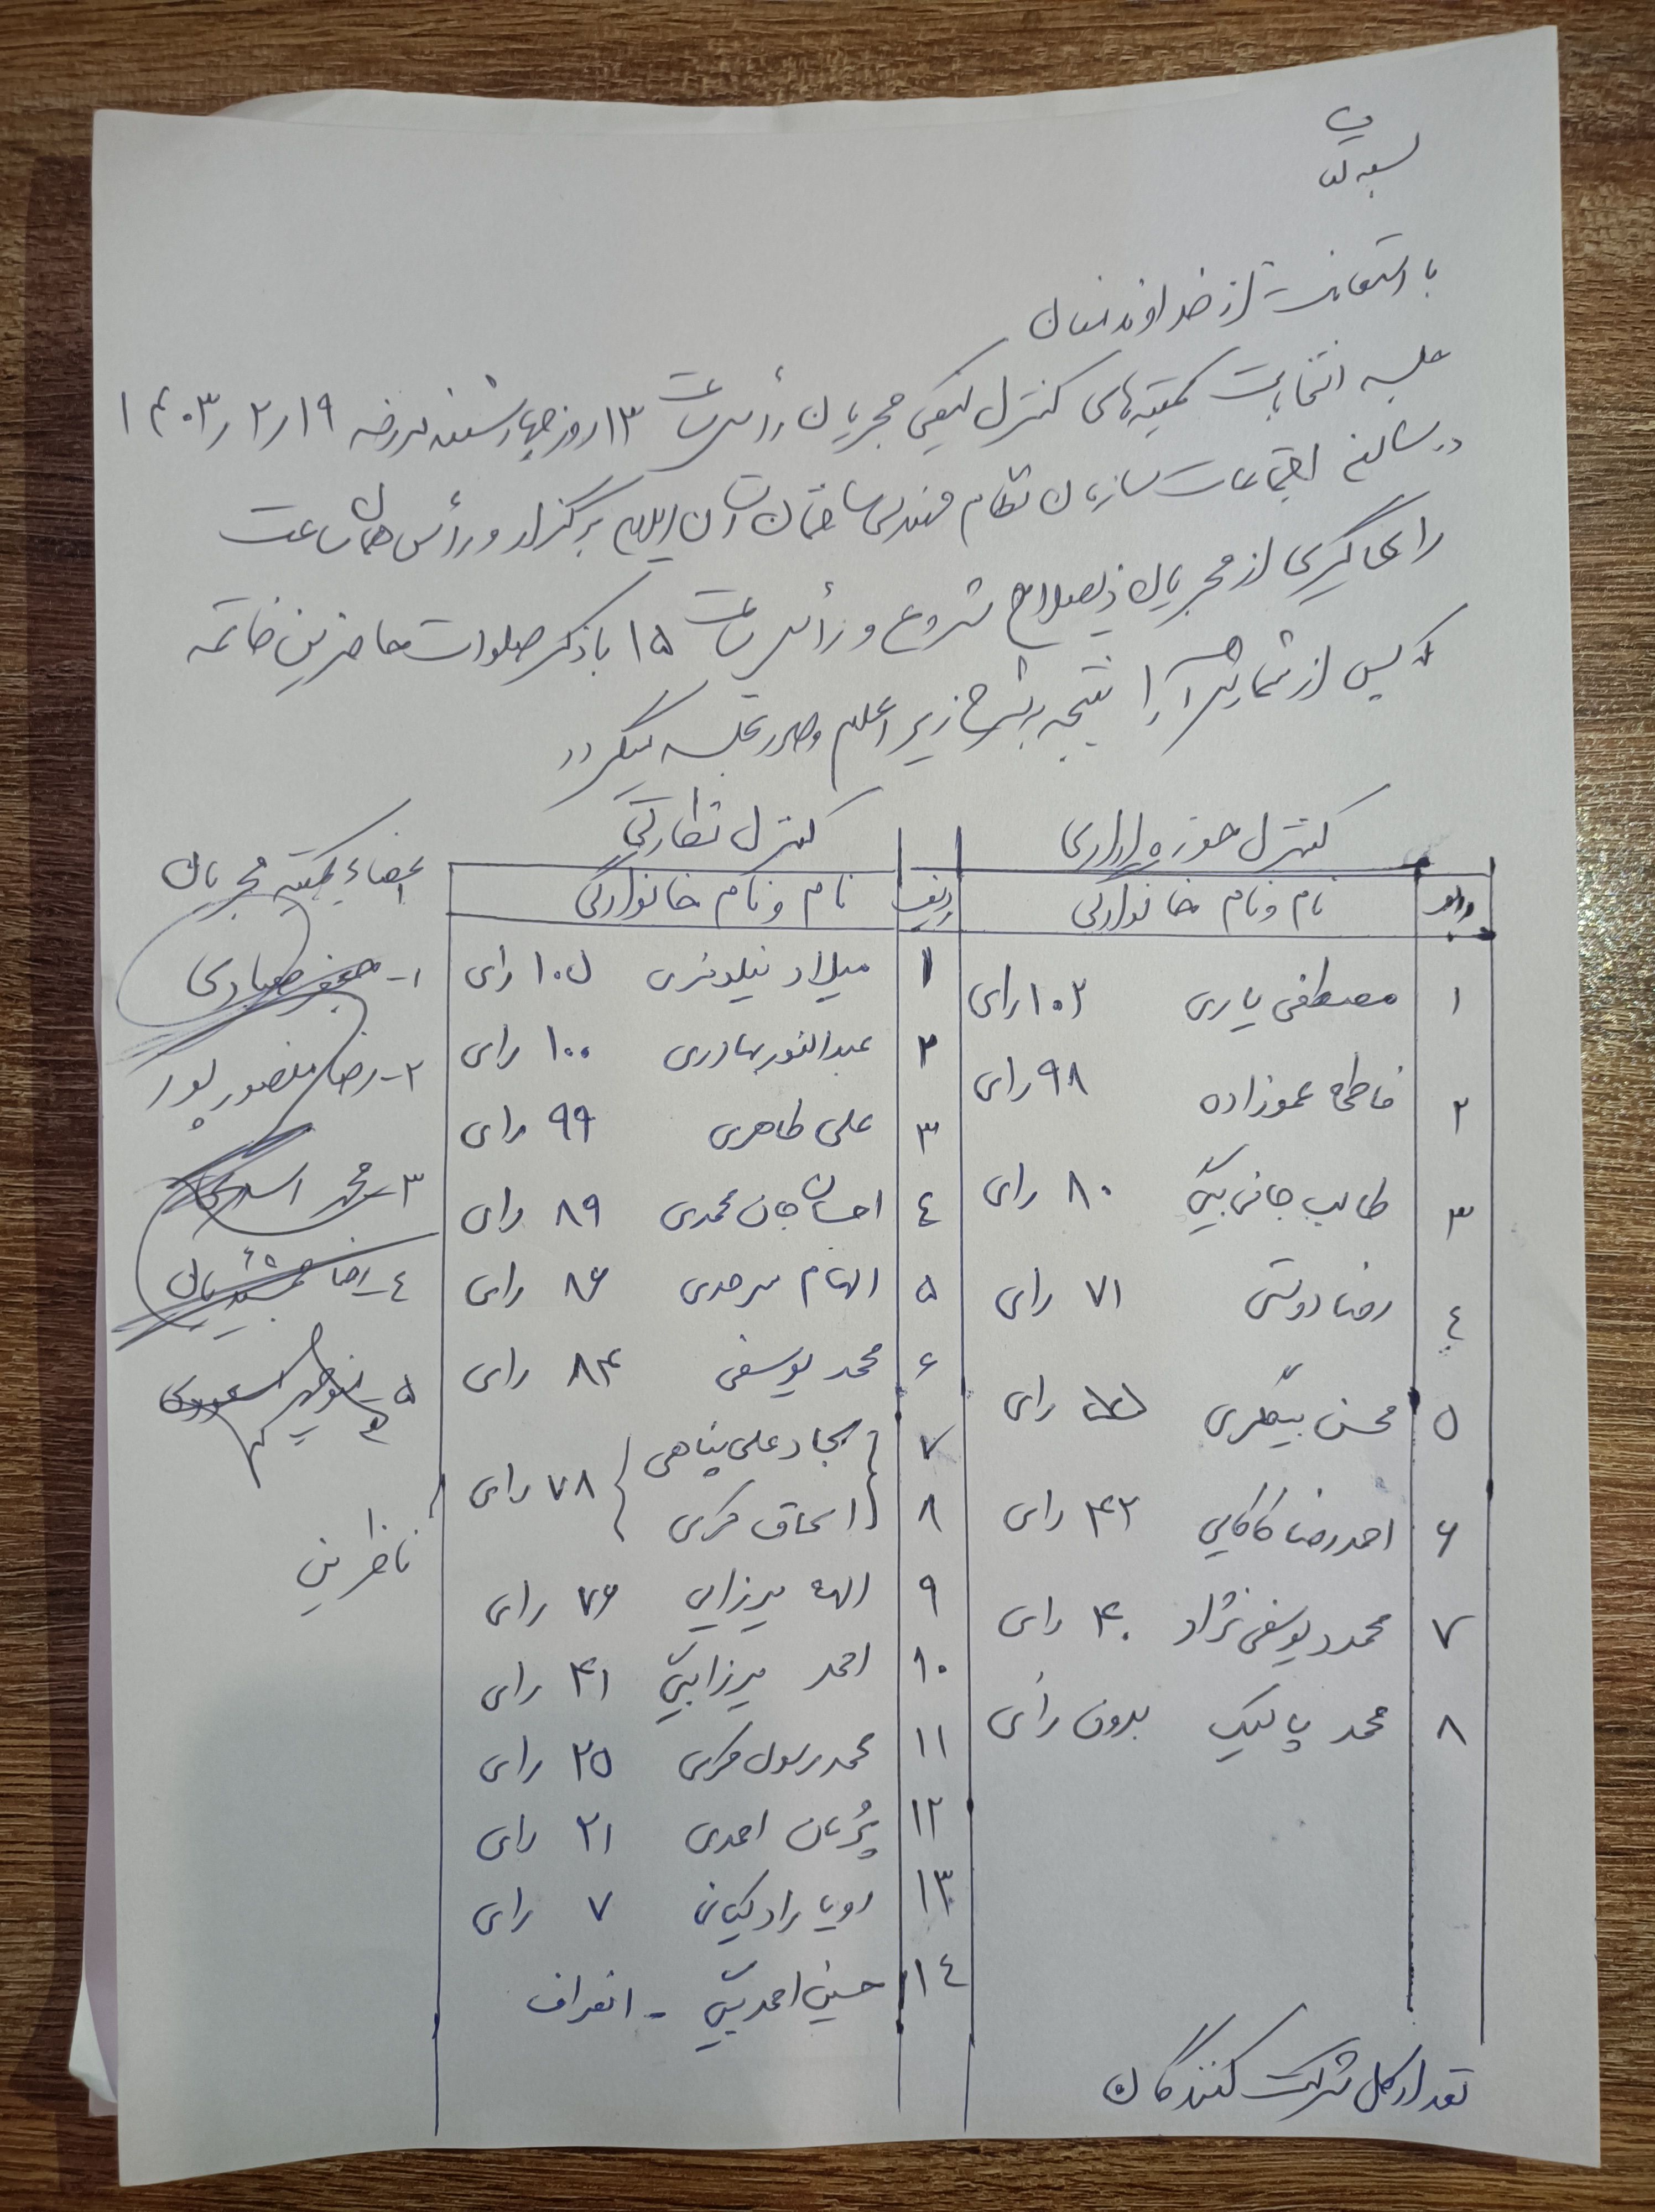 بسمه تعالی
با استعانت از خداوند منان
جلسه انتخابات کمیته‌های کنترل کیفی مجریان رأس ساعت ۱۳ روز چهارشنبه مورخه ۱۴۰۳/۲/۱۹
در سالن اجتماعات سازمان نظام مهندسی ساختمان استان ایلام برگزار و رأس همان ساعت
رای گیری از مجریان ذیصلاح شروع و رأس ساعت ۱۵ با ذکر صلوات حاضرین خاتمه
که پس از شمارش آرا نتیجه بشرح زیر اعلام و صورتجلسه میگردد
کنترل حوزه اداری
ردیف نام و نام خانوادگی
۱ مصطفی یاری ۱۰۲ رای
۲ فاطمه عموزاده ۹۸ رای
۳ طالب جانی بیگی ۸۰ رای
۴ رضا دوستی ۷۱ رای
۵ محسن بیگلری ۵۵ رای
۶ احمدرضا کاکایی ۴۲ رای
۷ محمود یوسفی نژاد ۴۰ رای
۸ محمد پالیک بدون رأی
کنترل نظارتی
ردیف نام و نام خانوادگی
۱ میلاد نیلوفری ۱۰۵ رای
۲ عبدالنور بهادری ۱۰۰ رای
۳ علی طاهری ۹۹ رای
۴ احسان جان محمدی ۸۹ رای
۵ الهام سرحدی ۸۶ رای
۶ محمد یوسفی ۸۴ رای
۷ سجاد علی پناهی
۸ اسحاق کرمی
۷۸ رای
۹ الهه میرزایی ۷۶ رای
۱۰ احمد میرزابیگی ۴۱ رای
۱۱ محمد رسول کرمی ۲۵ رای
۱۲ پژمان احمدی ۲۱ رای
۱۳ رویا رادکیان ۷ رای
۱۴ حسین احمدبیگی - انصراف
اعضاء کمیته مجریان
۱- جعفر صیادی
۲- رضا منصورپور
۳- محمد اسدی
۴- رضا جمشیدیان
۵- مسعودی
ناظرین
تعداد کل شرکت کنندگان